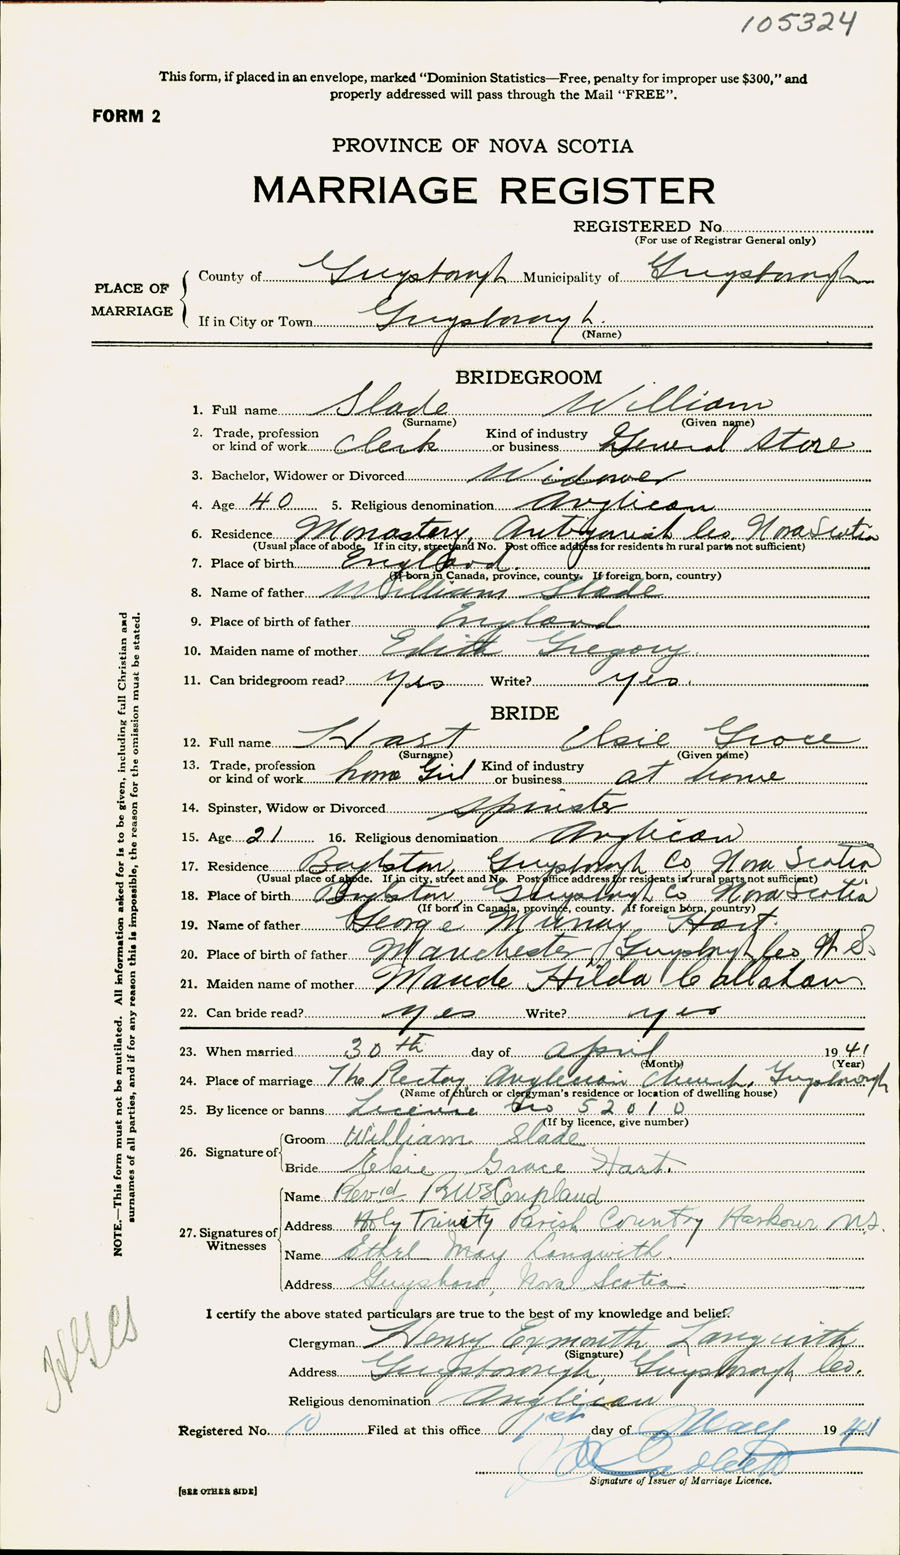 105324
This form, if placed in an envelope, marked "Dominion Statistics—Free, penalty for improper use $300," and
properly addressed will pass through the Mail "FREE".
FORM 2
PROVINCE OF NOVA SCOTIA
MARRIAGE REGISTER
REGISTERED No.
(For use of Registrar General only)
PLACE OF MARRIAGE
County of Guysborough Municipality of Guysborough
If in City or Town Guysborough.
(Name)
BRIDEGROOM
1. Full name Slade William
(Surname) (Given name)
2. Trade, profession or kind of work Clerk Kind of industry or business General Store
3. Bachelor, Widower or Divorced Widower
4. Age 40 5. Religious denomination Anglican
6. Residence Monastery, Antigonish Co. Nova Scotia
(Usual place of abode. If in city, street and No. Post office address for residents in rural parts not sufficient)
7. Place of birth England.
(If born in Canada, province, county. If foreign born, country)
8. Name of father William Slade
9. Place of birth of father England
10. Maiden name of mother Edith Gregory
11. Can bridegroom read? yes Write? yes.
BRIDE
12. Full name Hart Elsie Grace
(Surname) (Given name)
13. Trade, profession or kind of work home Girl Kind of industry or business at home
14. Spinster, Widow or Divorced Spinster
15. Age 21 16. Religious denomination Anglican
17. Residence Boylston, Guysborough Co, Nova Scotia
(Usual place of abode. If in city, street and No. Post office address for residents in rural parts not sufficient)
18. Place of birth Boylston, Guysboro Co Nova Scotia
(If born in Canada, province, county. If foreign born, country)
19. Name of father George Murray Hart.
20. Place of birth of father Manchester, Guysboro Co N.S.
21. Maiden name of mother Maude Hilda Callahan
22. Can bride read? yes Write? yes
23. When married 30th day of April 1941
(Month) (Year)
24. Place of marriage The Rectory Anglican Church, Guysborough
(Name of church or clergyman's residence or location of dwelling house)
25. By licence or banns Licence No 52010
(If by licence, give number)
26. Signature of
Groom William Slade
Bride Elsie Grace Hart.
27. Signatures of Witnesses
Name Rev'd Coupland
Address Holy Trinity Parish Country Harbour N.S.
Name Ethel May Langwith
Address Guysboro, Nova Scotia.
I certify the above stated particulars are true to the best of my knowledge and belief.
Clergyman Henry Exmouth Langwith
(Signature)
Address Guysborough, Guysborough Co.
Religious denomination Anglican
Registered No. 10 Filed at this office 1st day of May 1941
Signature of Issuer of Marriage Licence.
[SEE OTHER SIDE]
NOTE.—This form must not be mutilated. All information asked for is to be given, including full Christian and
surnames of all parties, and if for any reason this is impossible, the reason for the omission must be stated.